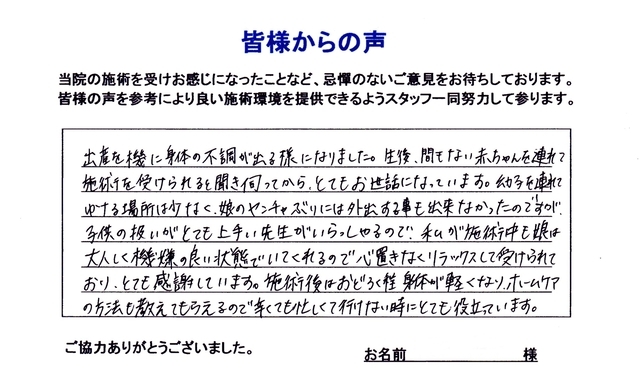 皆様からの声
当院の施術を受けお感じになったことなど、忌憚のないご意見をお待ちしております。
皆様の声を参考により良い施術環境を提供できるようスタッフ一同努力して参ります。
出産を機に身体の不調が出る様になりました。生後、間もない赤ちゃんを連れて
施術を受けられると聞き伺ってから、とてもお世話になっています。幼子を連れて
ゆける場所は少なく、娘のヤンチャぶりには外出する事も出来なかったのですが、
子供の扱いがとても上手い先生がいらっしゃるので、私が施術中も娘は
大人しく機嫌の良い状態でいてくれるので心置きなくリラックスして受けられて
おり、とても感謝しています。施術後はおどろく程身体が軽くなり、ホームケア
の方法も教えてもらえるので辛くても忙しくて行けない時にとても役立っています。
ご協力ありがとうございました。
お名前 様